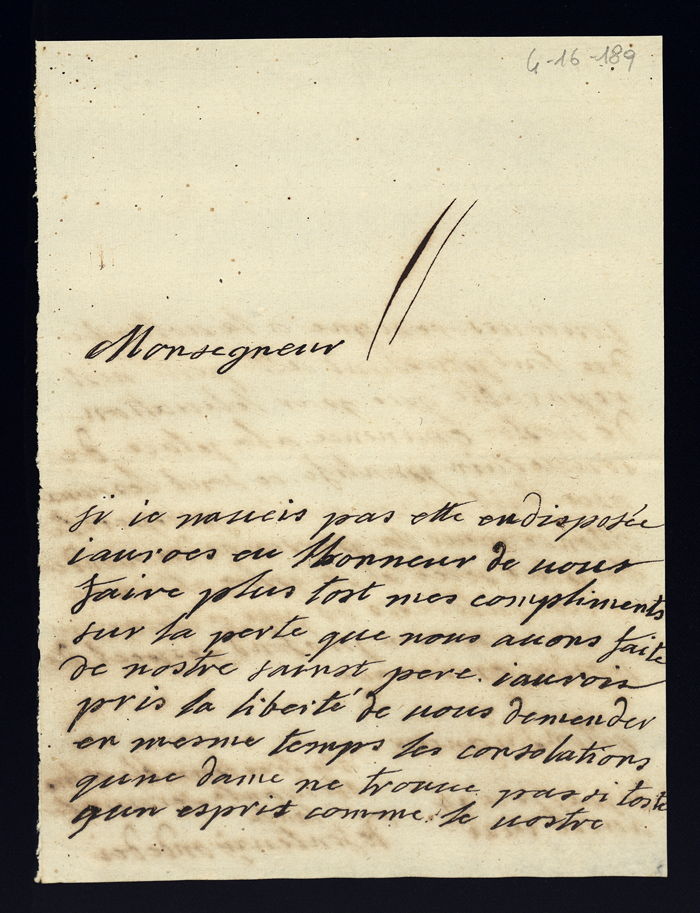 4-16-189
Monsegneur
si ie naueis pas ette endisposée
iauroes eu lhonneur de uous
faire plus tost mes compliments
sur la perte que nous auons faite
de nostre sainst pere. iaurois
pris la liberté de uous demender
en mesme temps les conselations
qune dame ne trouue pas si toste
qun esprit comme le uostre